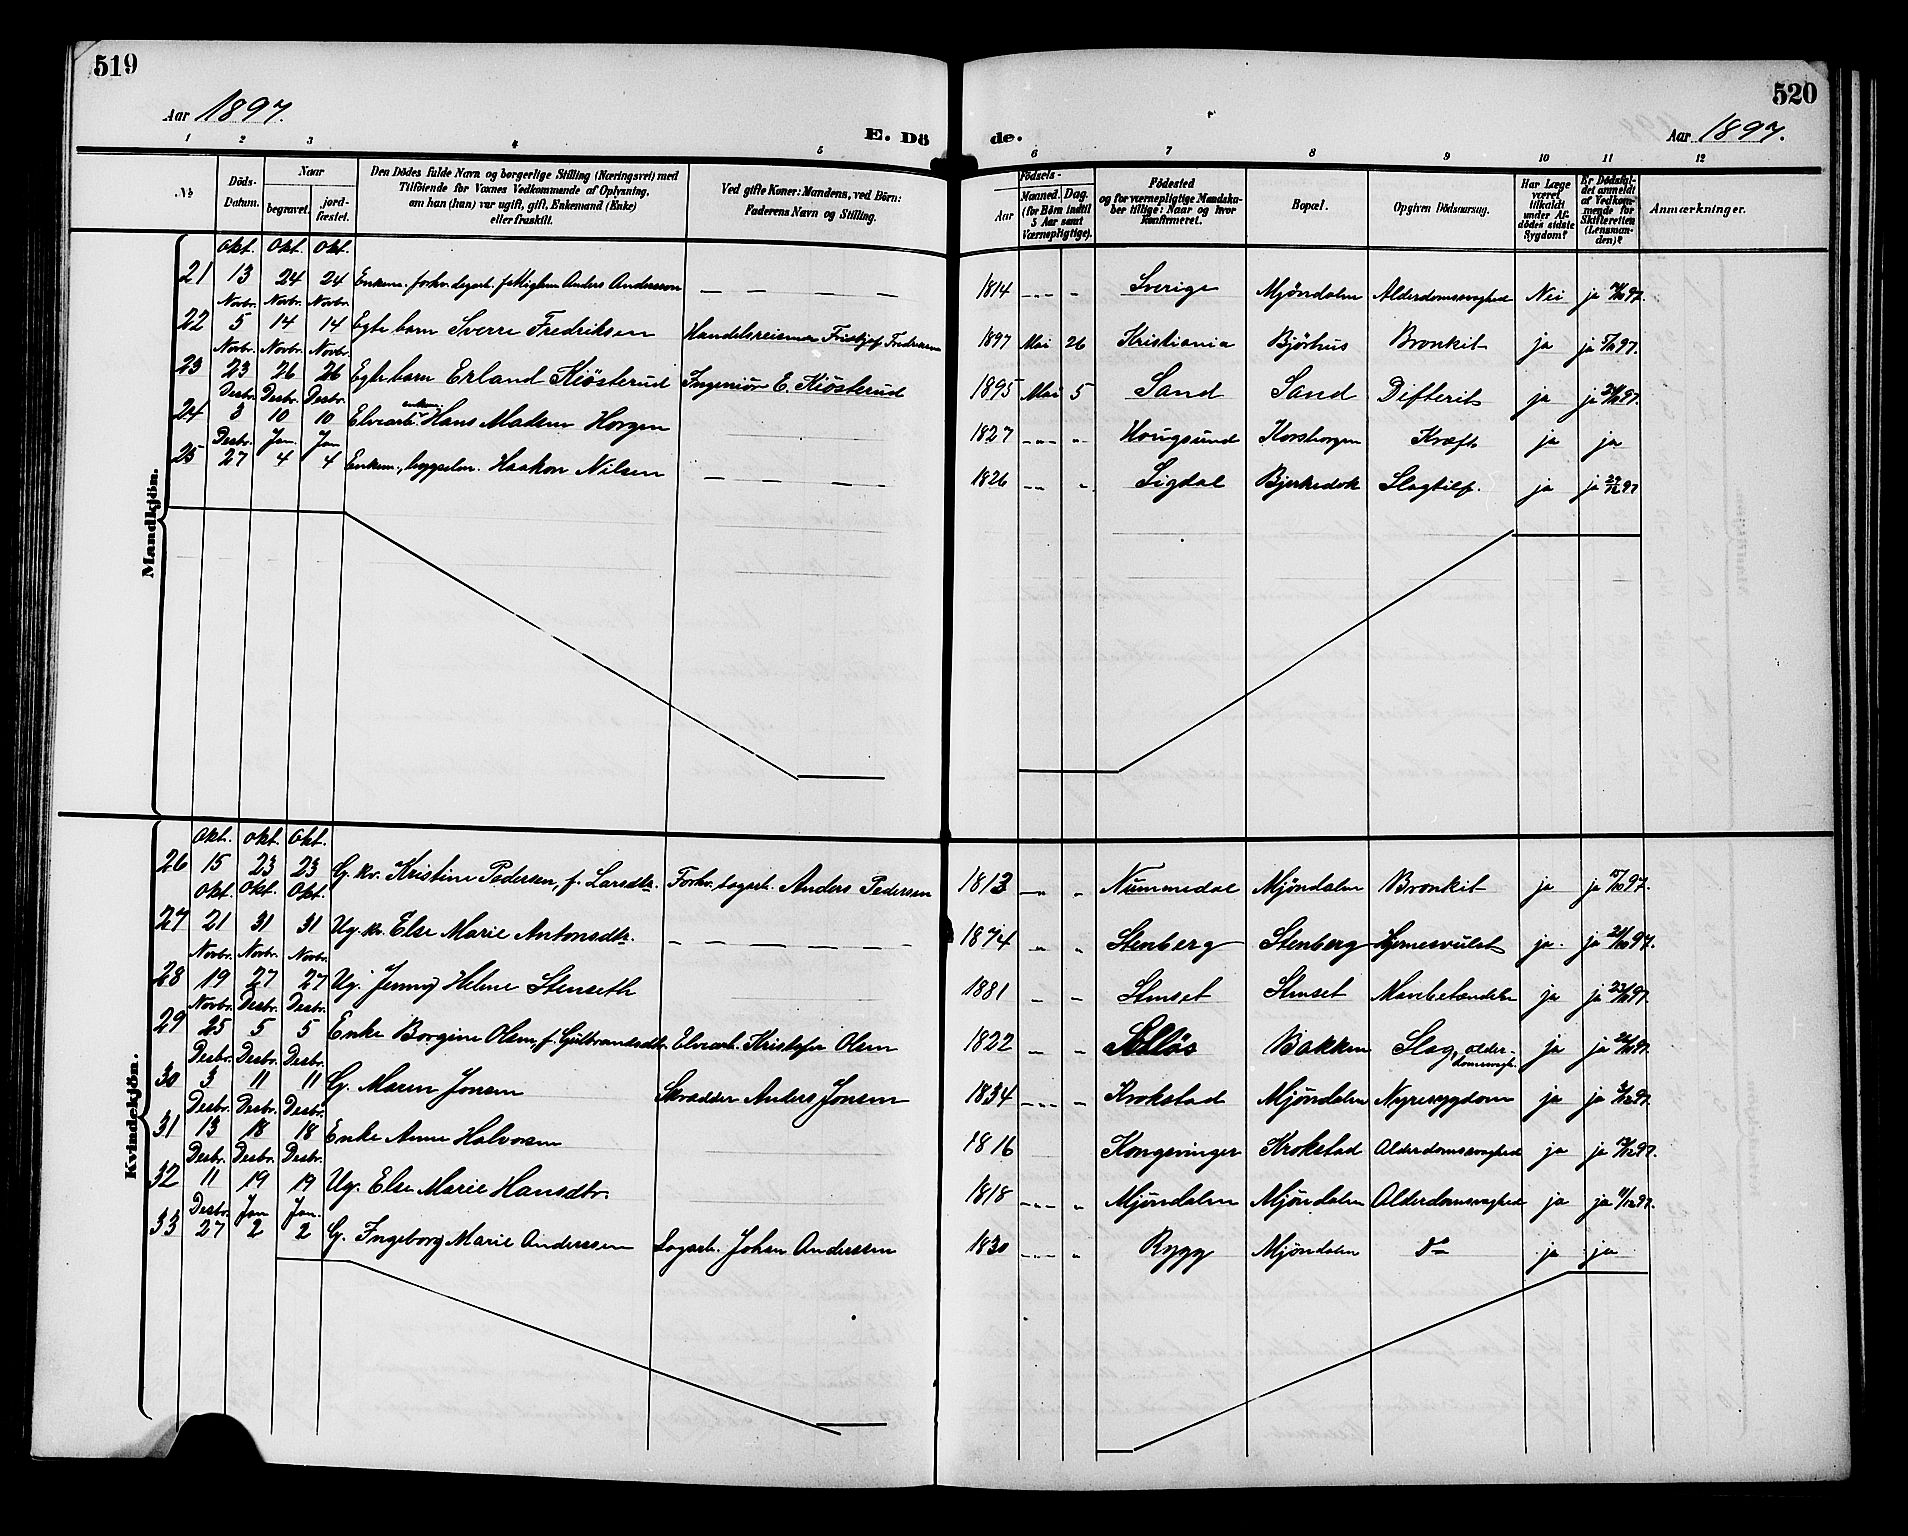 519
520
Aar 1897.
E. Dö de.
Aar 1897.
1 2 3 4 5 6 7 8 9 10 11 12
No
Döds-Datum.
Naar
begravet.
jord-fæstet.
Den Dödes fulde Navn og borgerlige Stilling (Næringsvei) med
Tilföiende for Voxnes Vedkommende af Oplysning,
om han (hun) var ugift, gift, Enkemand (Enke)
eller fraskilt.
Ved gifte Koner: Mandens, ved Börn:
Faderens Navn og Stilling.
Födsels-
Aar
Maaned. Dag.
(for Börn indtil
5 Aar samt
Værnepligtige).
Födested
og for værnepligtige Mandska-
ber tillige: Naar og hvor
Konfirmeret.
Bopæl.
Opgiven Dödsaarsag.
Har Læge
været
tilkaldt
under Af-
dödes sidste
Sygdom?
Er Dödsfal-
det anmeldt
af Vedkom-
mende for
Skifteretten
(Lensman-
den)?
Anmærkninger.
Mandkjön.
Okt. Okt. Okt.
21 13 24 24 Enkem. forhv. dagarb. fattiglem Anders Andersson — — — — 1814 Sverige Mjöndalen Alderdomssvaghed Nei ja
Novbr. Novbr. Novbr.
22 5 14 14 Egte barn Sverre Fredriksen Handelsreisende 1897 Mai 26 Kristiania Björhus Bronkit ja ja
Novbr. Novbr. Novbr.
23 23 26 26 Egte barn Erland Kiösterud Ingeniör E. Kiösterud 1895 Mai 5 Sand Sand Difterit ja ja
Desbr. Desbr. Desbr.
24 3 10 10 Elvearb. enkem. Hans Madsen Horgen 1827 Hougsund Korshorgen Kræft ja ja
Desbr. Jan Jan
25 27 4 4 Enkem., bygselm. Haakon Nilsen — — — — 1826 Sigdal Bjerkedok Slagtilf. ja ja 29/12 97
Kvindekjön.
Okt. Okt. Okt.
26 15 23 23 G. kv. Kristine Pedersen, f. Larsdtr. Forhv. sagarb. Anders Pedersen 1813 Nummedal Mjöndalen Bronkit ja ja
Okt. Okt. Okt.
27 21 31 31 Ug. kv. Else Marie Antonsdtr. — — — — 1874 Stenberg Stenberg Hjernesvulst ja. ja
Novbr. Novbr. Novbr.
28 19 27 27 Ug. Jenny Helene Stenseth 1881 Stenset Stenset Mavebetændelse ja ja
Novbr. Desbr. Desbr.
29 25 5 5 Enke Borgine Olsen, f. Gulbrandsdtr. Elvearb. Kristofer Olsen 1822 Bakken Slag, alder-
domssvagh. ja ja
Desbr. Desbr. Desbr.
30 3 11 11 G. Maren Jonsen Skrædder Anders Jonsen 1834 Krokstad Mjöndalen Nyresygdom ja ja
Desbr. Desbr. Desbr.
31 13 18 18 Enke Anne Halvorsen 1816 Kongsvinger Krokstad Alderdomssvaghed ja ja
Desbr. Desbr. Desbr.
32 11 19 19 Ug. Else Marie Hansdtr. 1818 Mjöndalen Mjöndalen Alderdomssvaghed ja ja
Desbr. Jan Jan.
33 27 2 2 G. Ingeborg Marie Anderssen Sagarb. Johan Anderssen 1830 Rygg Mjöndalen do ja ja